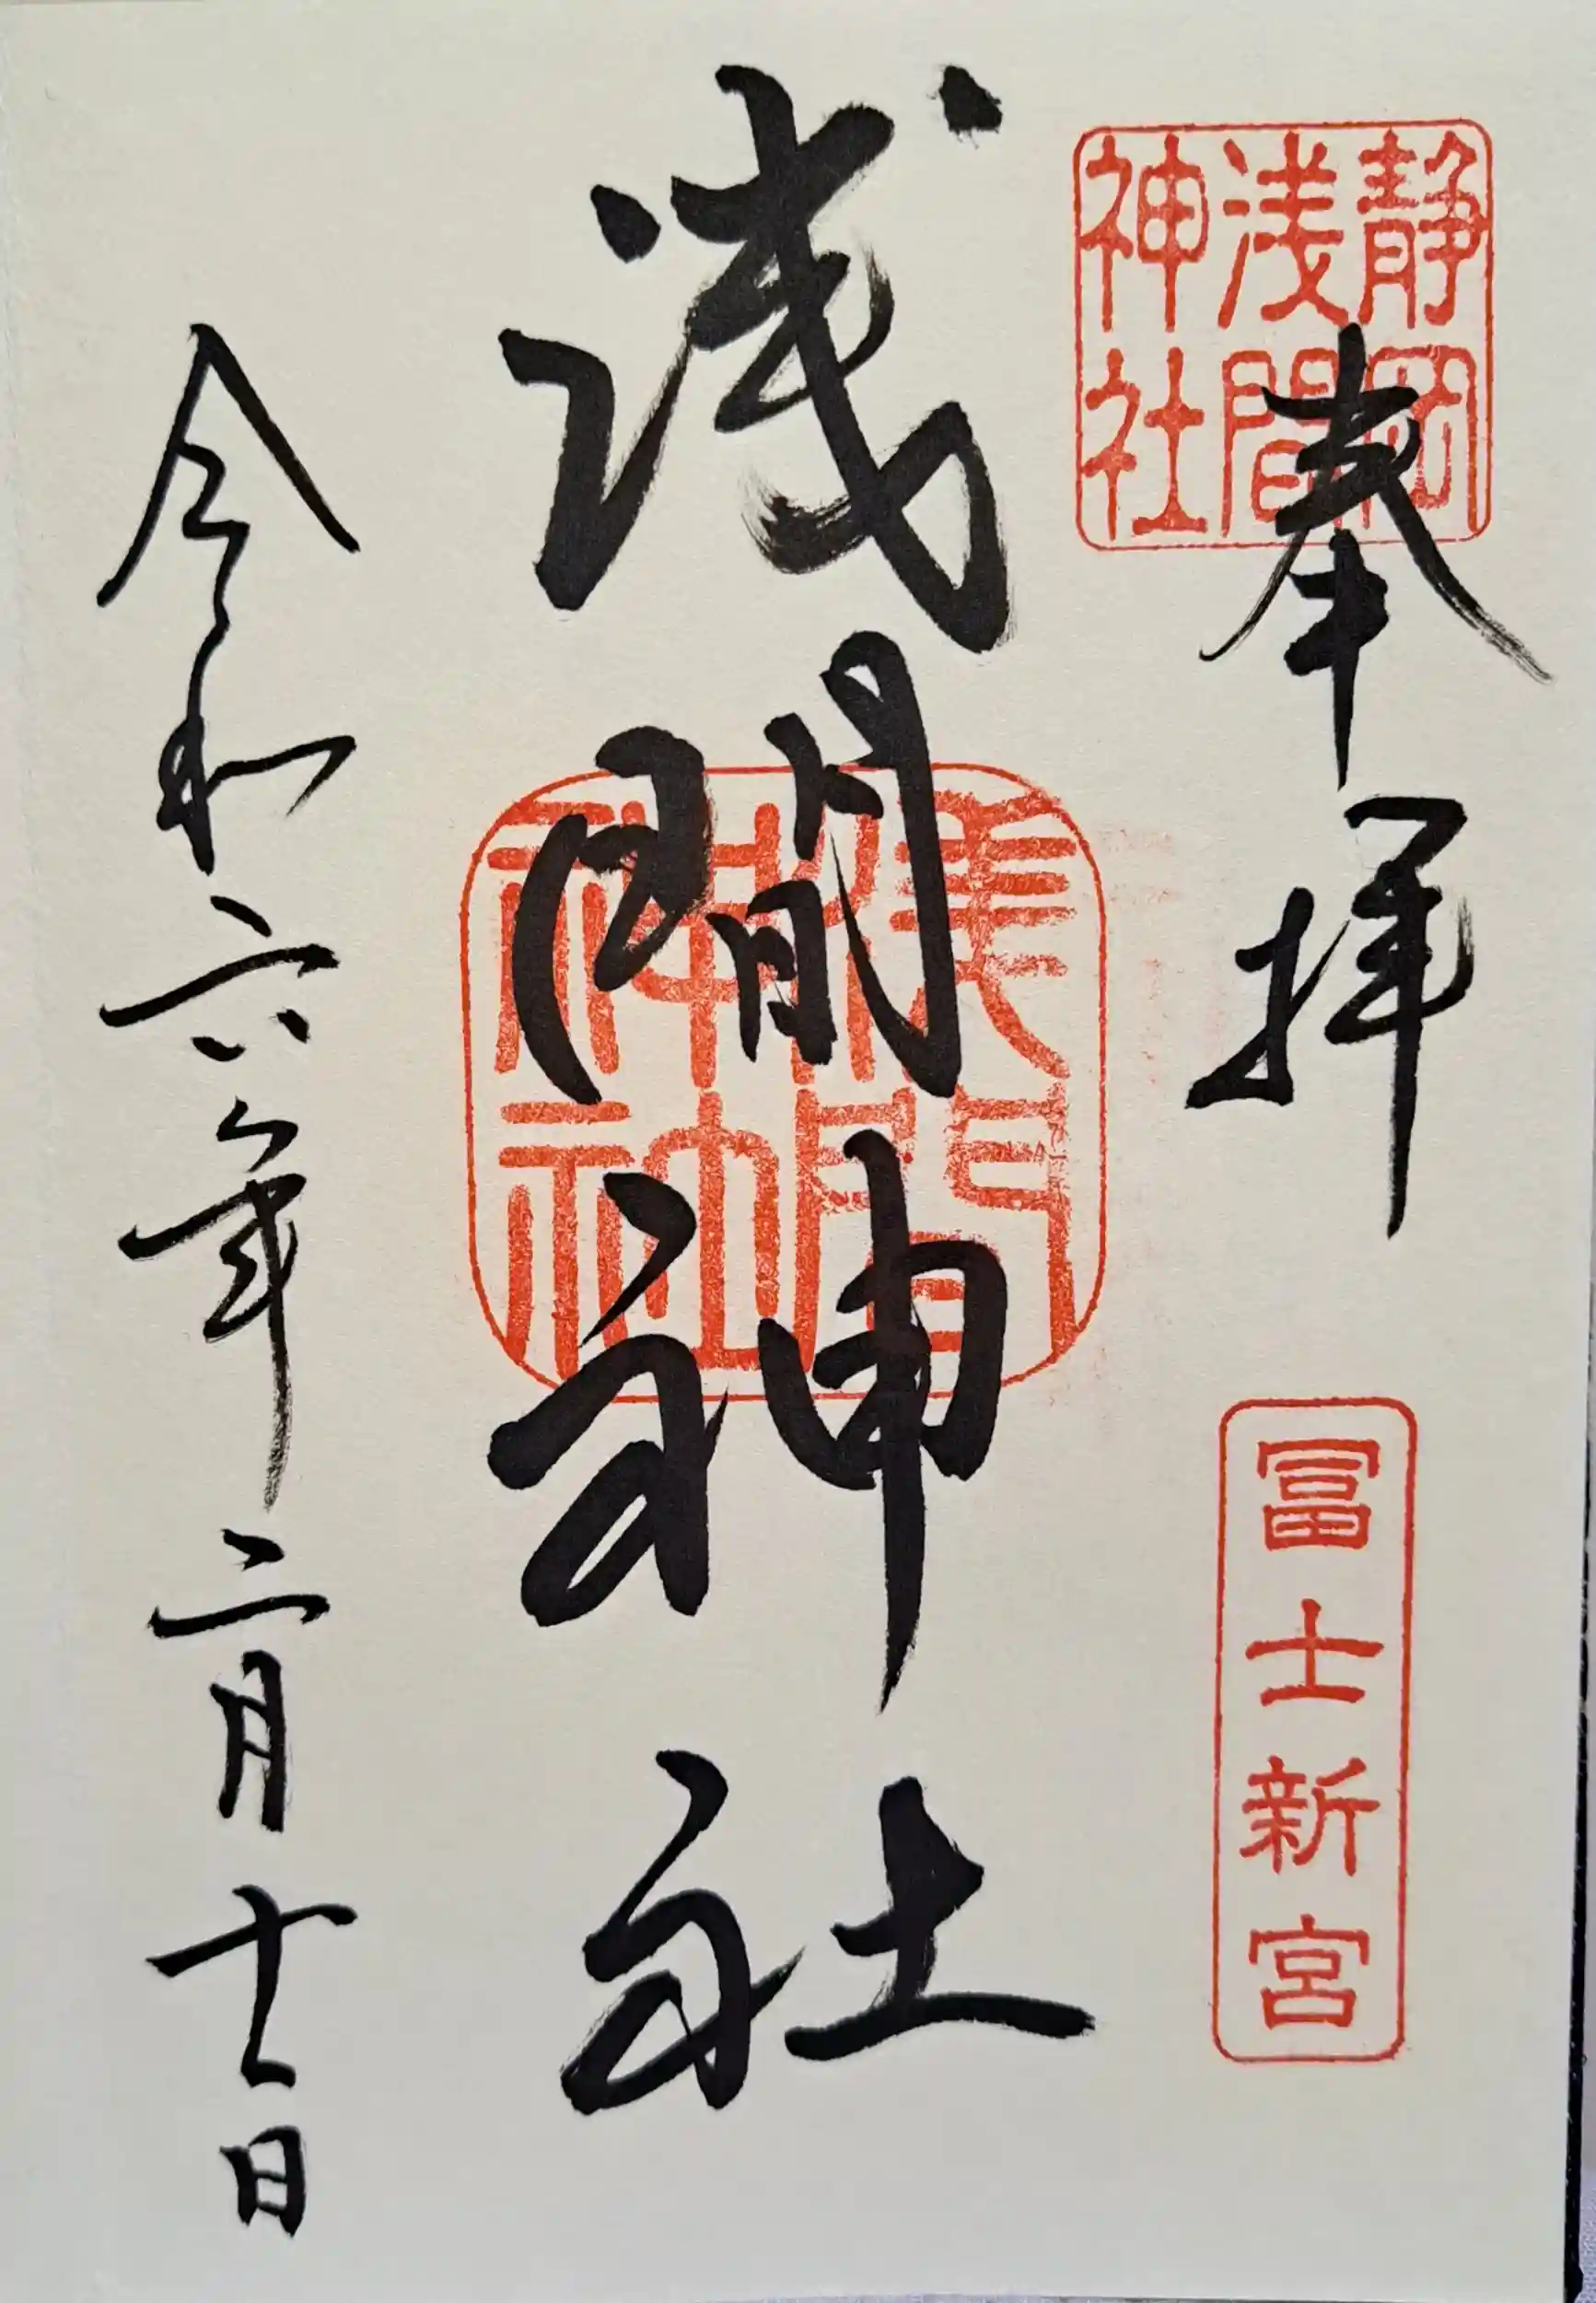 静岡
浅間
神社
奉拝
冨士新宮
浅間神社
令和六年二月十一日